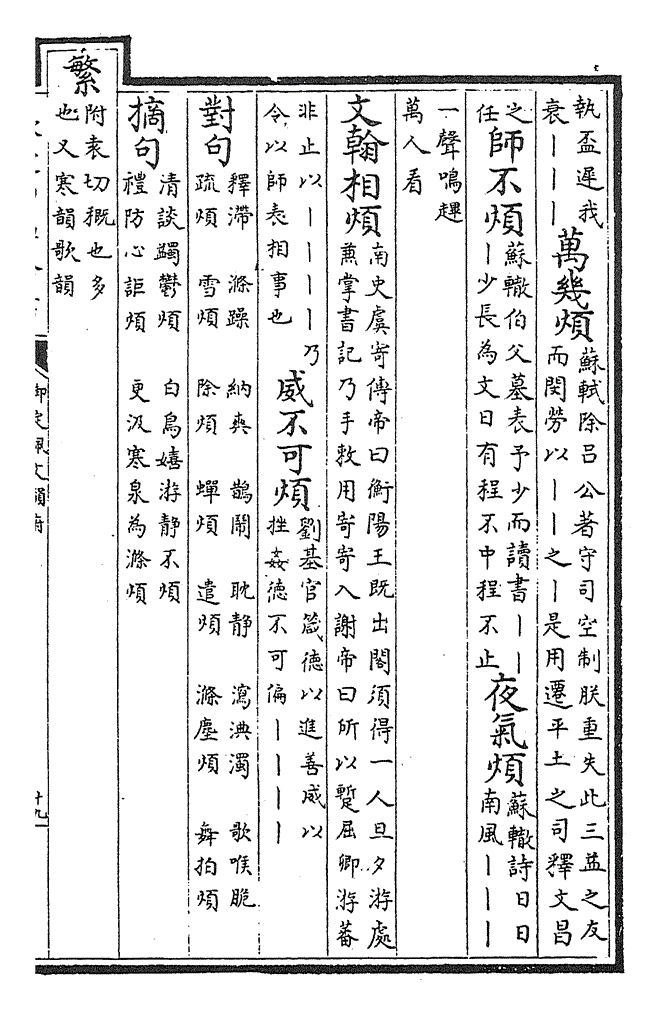 執盃遲我
衰｜｜｜
萬幾煩
蘇軾除呂公著守司空制朕重失此三益之友
而閔勞以｜｜之｜是用遷平土之司釋文昌
之
任
師不煩
蘇轍伯父墓表予少而讀書｜｜
｜少長為文日有程不中程不止
夜氣煩
蘇轍詩日日
南風｜｜｜
一聲鳴趯
萬人看
文翰相煩
南史虞寄傳帝曰衡陽王既出閤須得一人旦夕游處
兼掌書記乃手敕用寄寄入謝帝曰所以蹔屈卿游蕃
非止以｜｜｜｜乃
令以師表相事也
威不可煩
劉基官箴德以進善威以
挫姦德不可偏｜｜｜｜
對句
釋滯 滌躁 納爽 鵲鬧 耽静 瀉淟濁 歌喉脆
疏煩 雪煩 除煩 蟬煩 遣煩 滌塵煩 舞拍煩
摘句
清談蠲鬱煩 白鳥嬉游静不煩
禮防心詎煩 更汲寒泉為滌煩
繁
附袁切概也多
也又寒韻歌韻
御定佩文韻府
十九